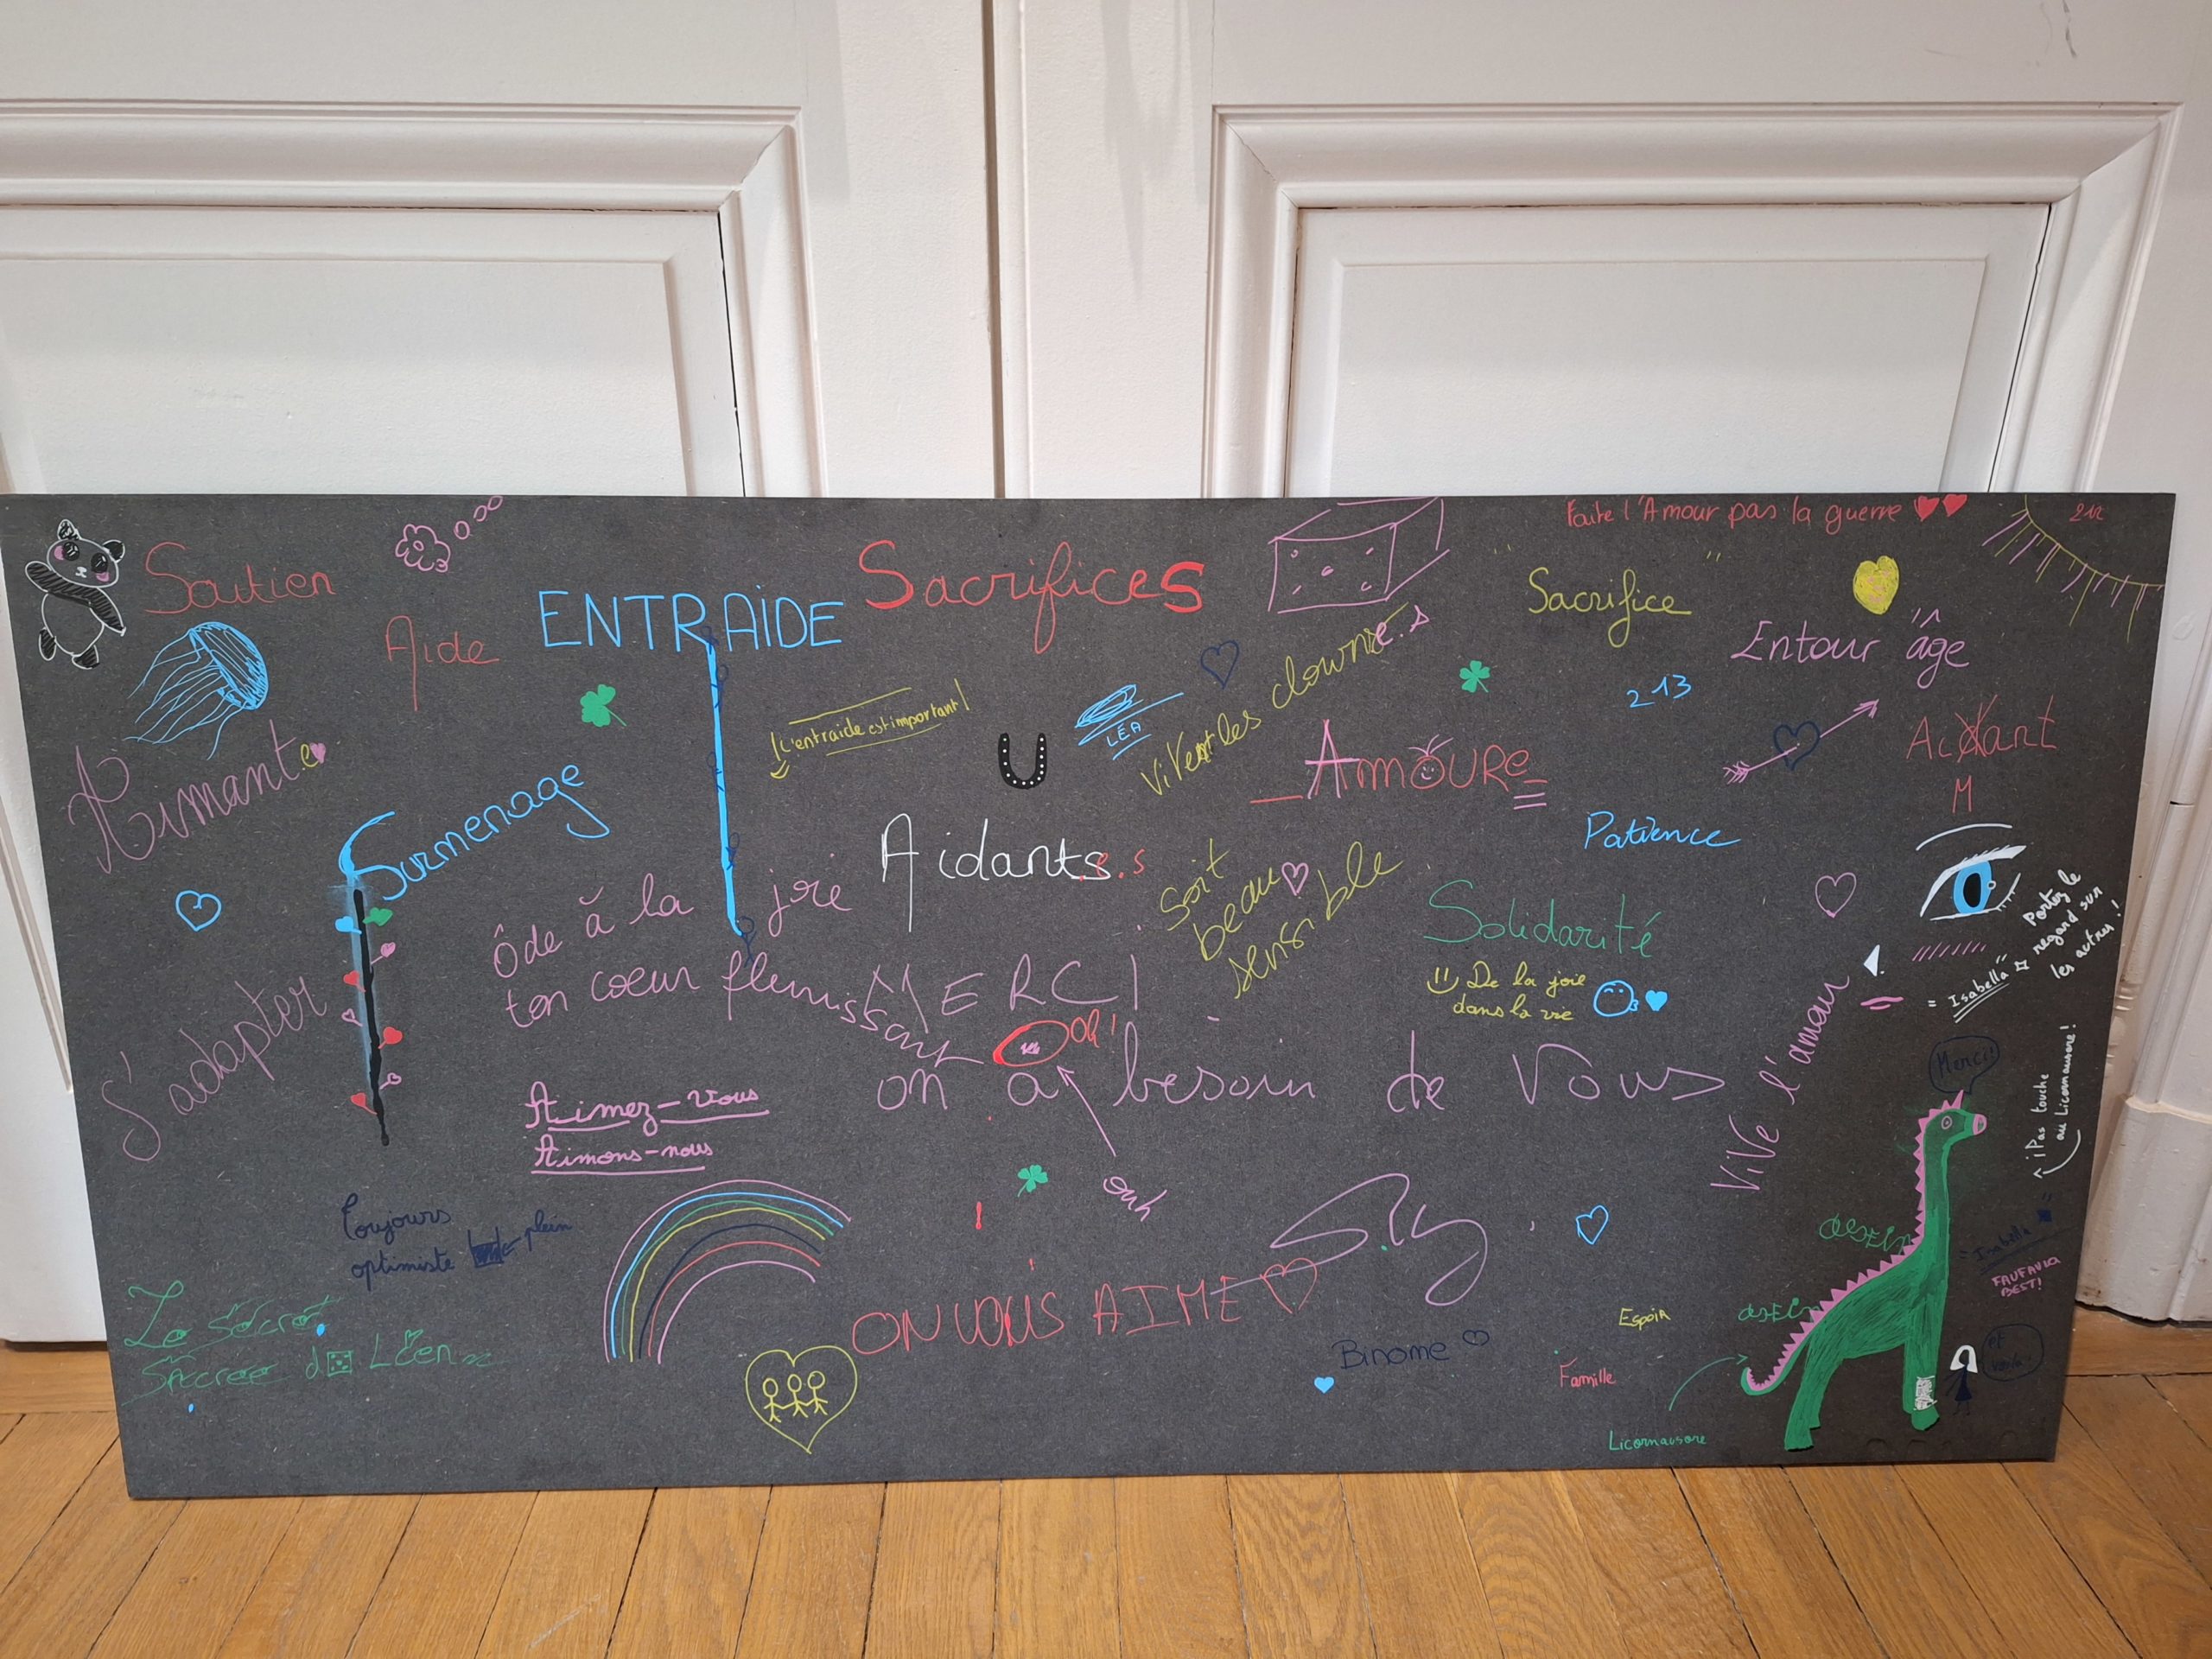 Faite l'Amour pas la guerre
212
Soutien
Aide
ENTRAIDE
Sacrifices
"Sacrifice"
Entour "âge
213
L'entraide est important!
LEA
Vivent les clowns.e.s
AMOURE
Aidant
M
Aimant.e
Surmenage
Aidants.e.s
Patience
Soit
beau
sensible
Solidarité
De la joie
dans la vie
Ôde à la joie
ton coeur fleurissant
MERCI
Oh!
on a besoin de vous
ouh
S'adapter
Aimez-vous
Aimons-nous
Vive l'amour
Portez le
regard sur
les autres!
= "Isabella"
Merci!
¡Pas touche
au Licornausore!
Toujours
optimiste
plein
Le Secret
Sacree
ON VOUS AIME
!
Binome
Espoir
Famille
Licornausore
Isabella
BEST!
et
voila!